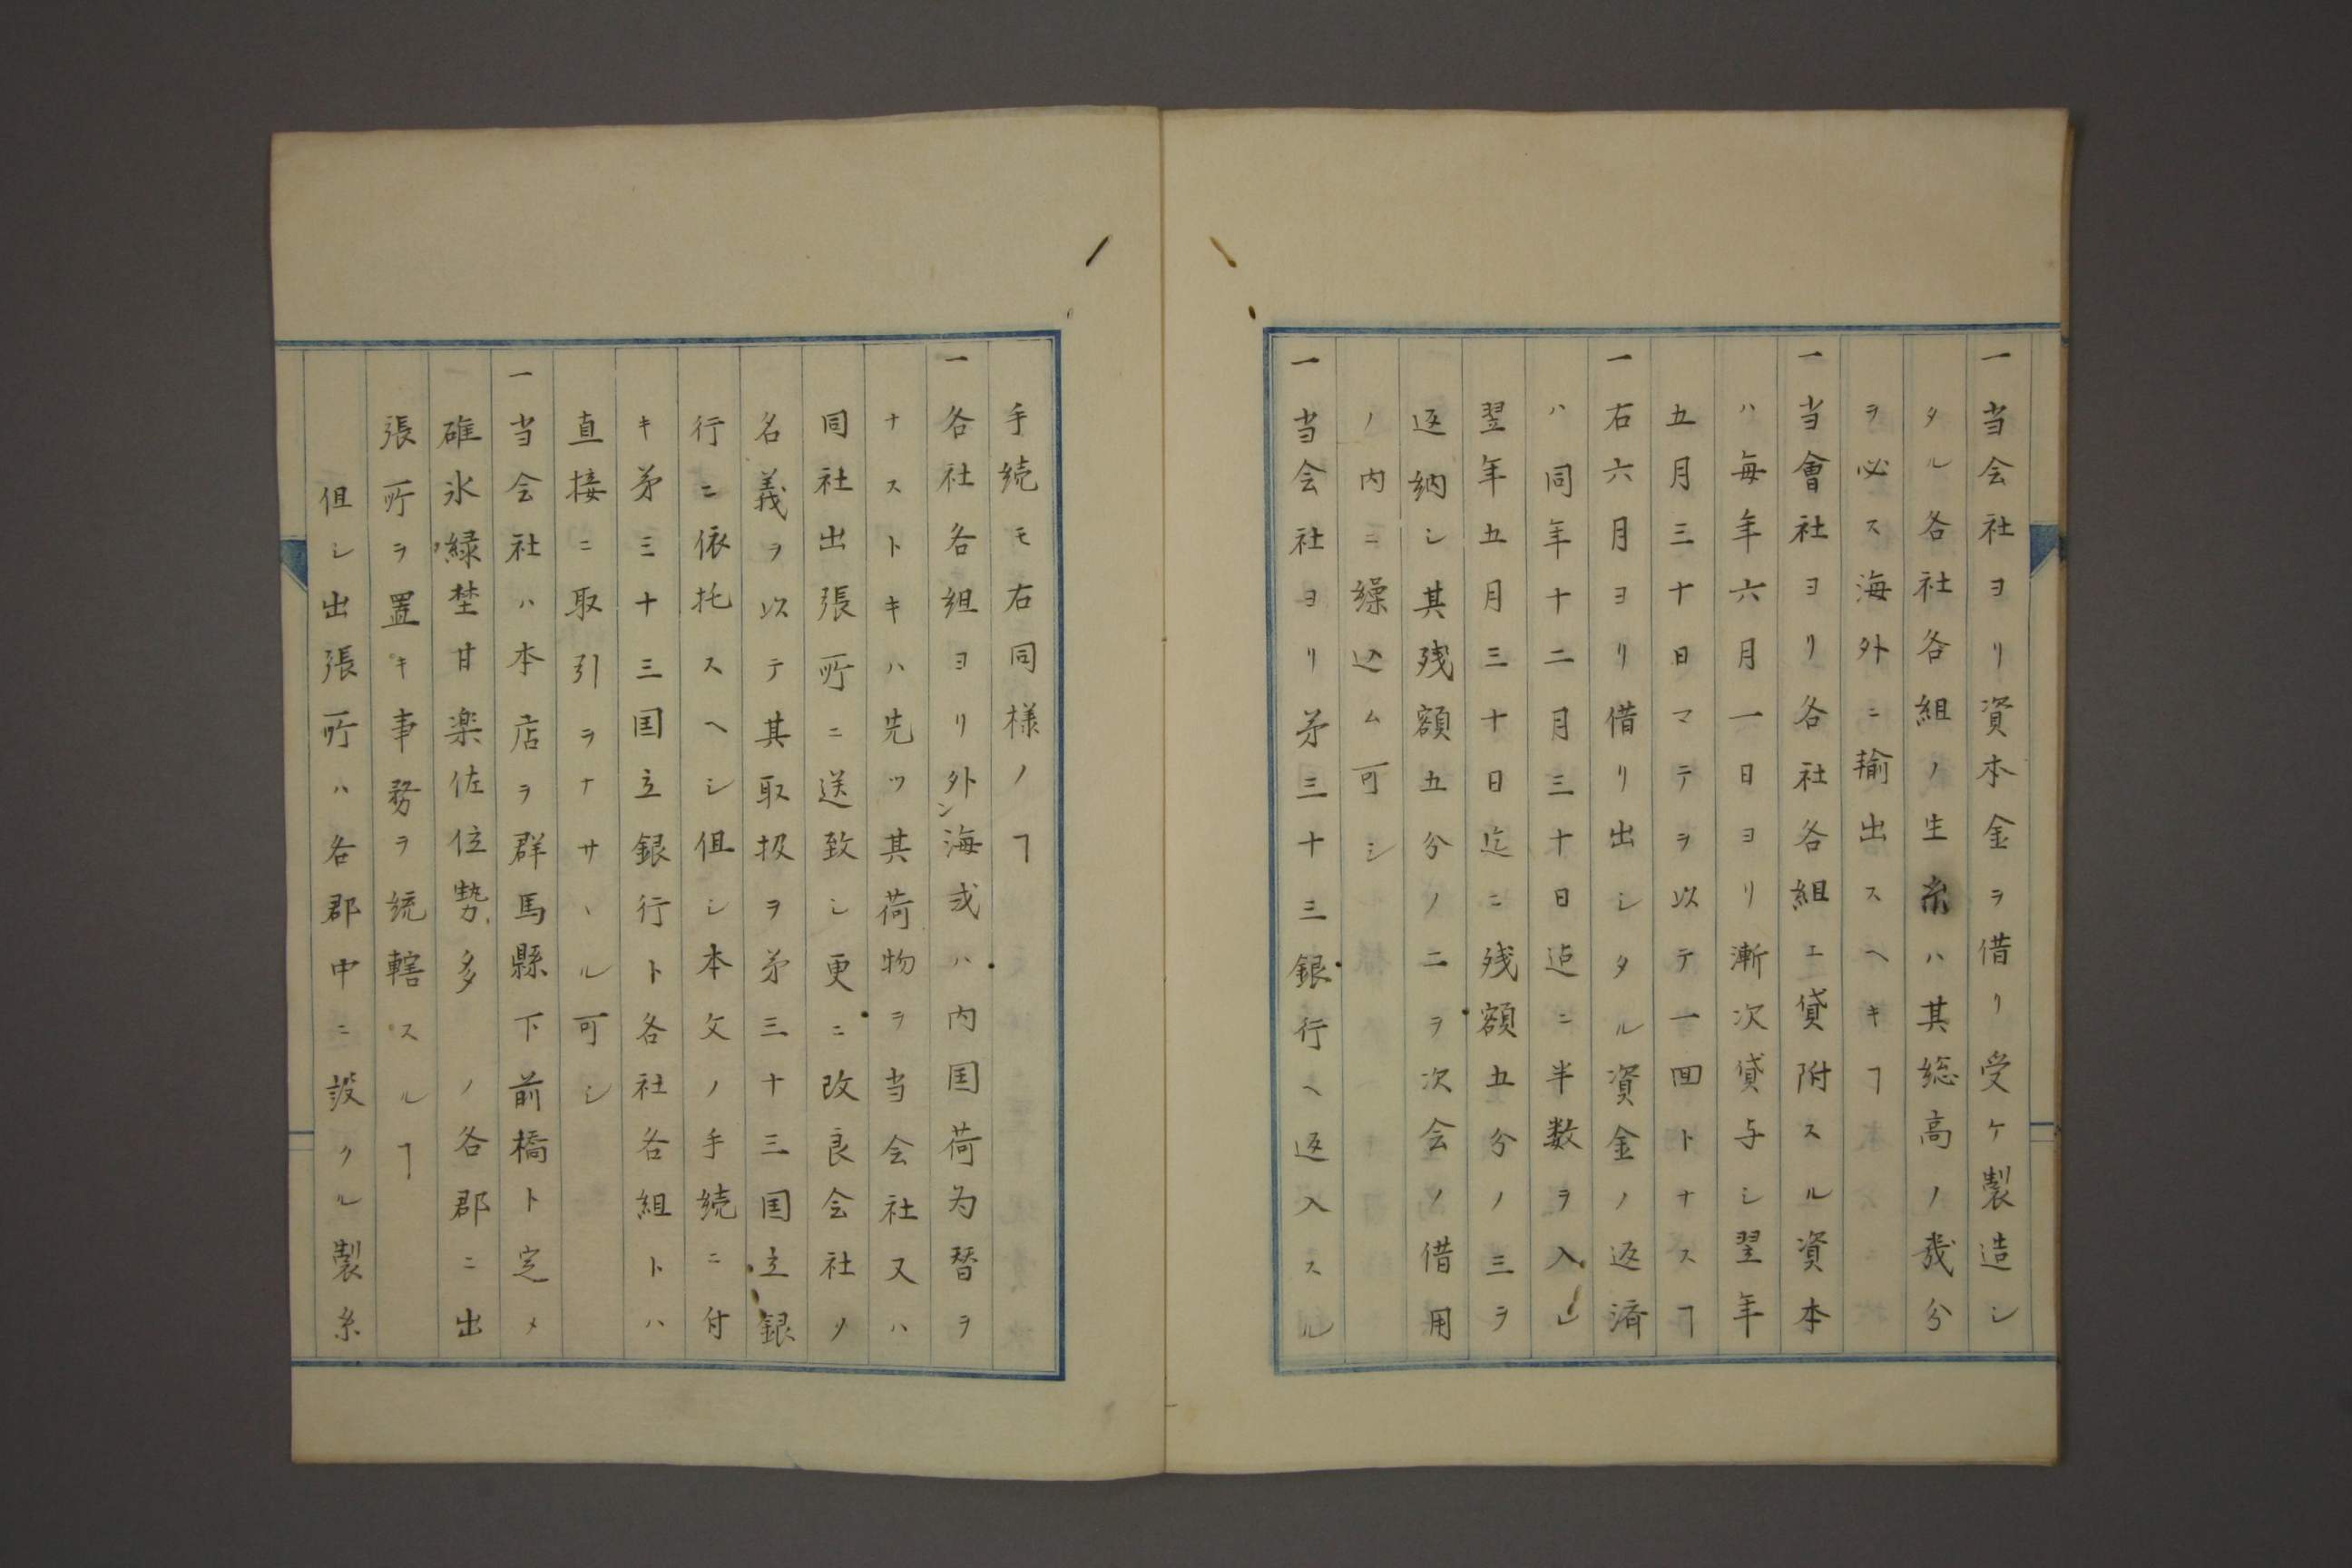 一当会社ヨリ資本金ヲ借リ受ケ製造シ
タル各社各組ノ生糸ハ其総高ノ幾分
ヲ必ス海外ニ輸出スヘキヿ
一当會社ヨリ各社各組エ貸附スル資本
ハ毎年六月一日ヨリ漸次貸与シ翌年
五月三十日マテヲ以テ一回トナスヿ
一右六月ヨリ借リ出シタル資金ノ返済
ハ同年十二月三十日迠ニ半数ヲ入レ
翌年五月三十日迄ニ残額五分ノ三ヲ
返納シ其残額五分ノ二ヲ次会ノ借用
ノ内ニ繰込ム可シ
一当会社ヨリ㐧三十三銀行ヘ返入スル
手続モ右同様ノヿ
一各社各組ヨリ外海或ハ内国荷為替ヲ
ナストキハ先ツ其荷物ヲ当会社又ハ
同社出張所ニ送致シ更ニ改良会社ノ
名義ヲ以テ其取扱ヲ㐧三十三国立銀
行ニ依托スヘシ但シ本文ノ手続ニ付
キ㐧三十三国立銀行ト各社各組トハ
直接ニ取引ヲナサヽル可シ
一当会社ハ本店ヲ群馬縣下前橋ト定メ
碓氷緑埜甘楽佐位勢多 ノ各郡ニ出
張所ヲ置キ事務ヲ統轄スルヿ
但シ出張所ハ各郡中ニ設クル製糸